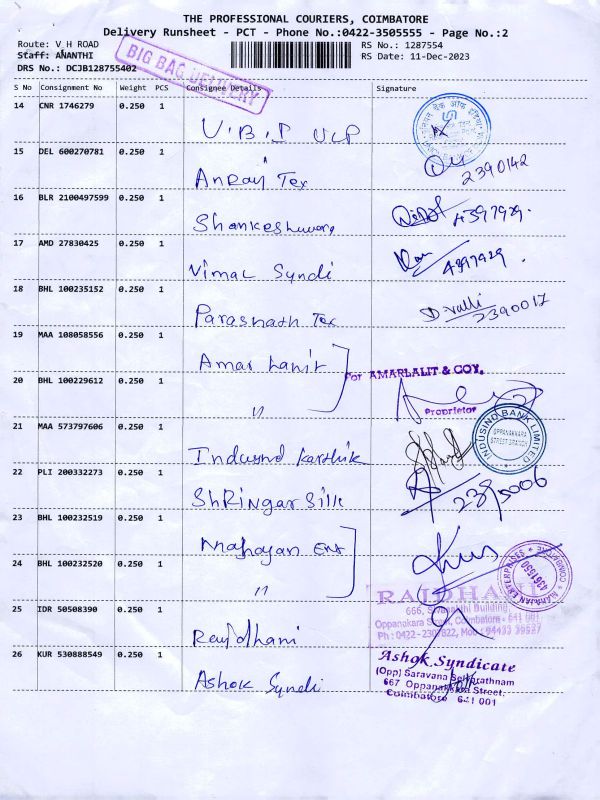 THE PROFESSIONAL COURIERS, COIMBATORE
Delivery Runsheet - PCT - Phone No.:0422-3505555 - Page No.:2
Route: V H ROAD
Staff: ANANTHI
DRS No.: DCJB128755402
RS No.: 1287554
RS Date: 11-Dec-2023
BIG BAG DELIVERY
S No Consignment No Weight PCS Consignee Details Signature
14 CNR 1746279 0.250 1
V.B.I ULP
15 DEL 600270781 0.250 1
Tex 2390142
16 BLR 2100497599 0.250 1
Shankeshwara 4397929.
17 AMD 27830425 0.250 1
Vimal Syndi 4397929.
18 BHL 100235152 0.250 1
Parasnath Tex D. Valli 2390017
19 MAA 108058556 0.250 1
Amar Lalit
For AMARLALIT & COY.
20 BHL 100229612 0.250 1
"
Proprietor
21 MAA 573797606 0.250 1
Indusnd Karthik
INDUSIND BANK LIMITED
OPPANAKKARA
STREET BRANCH
22 PLI 200332273 0.250 1
Shringar Silk
23 BHL 100232519 0.250 1
Mahajan Ent
24 BHL 100232520 0.250 1
"
MAHAJAN ENTERPRISES
4361550
25 IDR 50508390 0.250 1
Raydhani
RAJDHANI
666, Sivasakthi Building,
Oppanakara Street, Coimbatore - 641 001
26 KUR 530888549 0.250 1
Ashok Syndi
Ashok Syndicate
(Opp) Saravana Selvarathnam
667 Oppanakkara Street,
Coimbatore 641 001